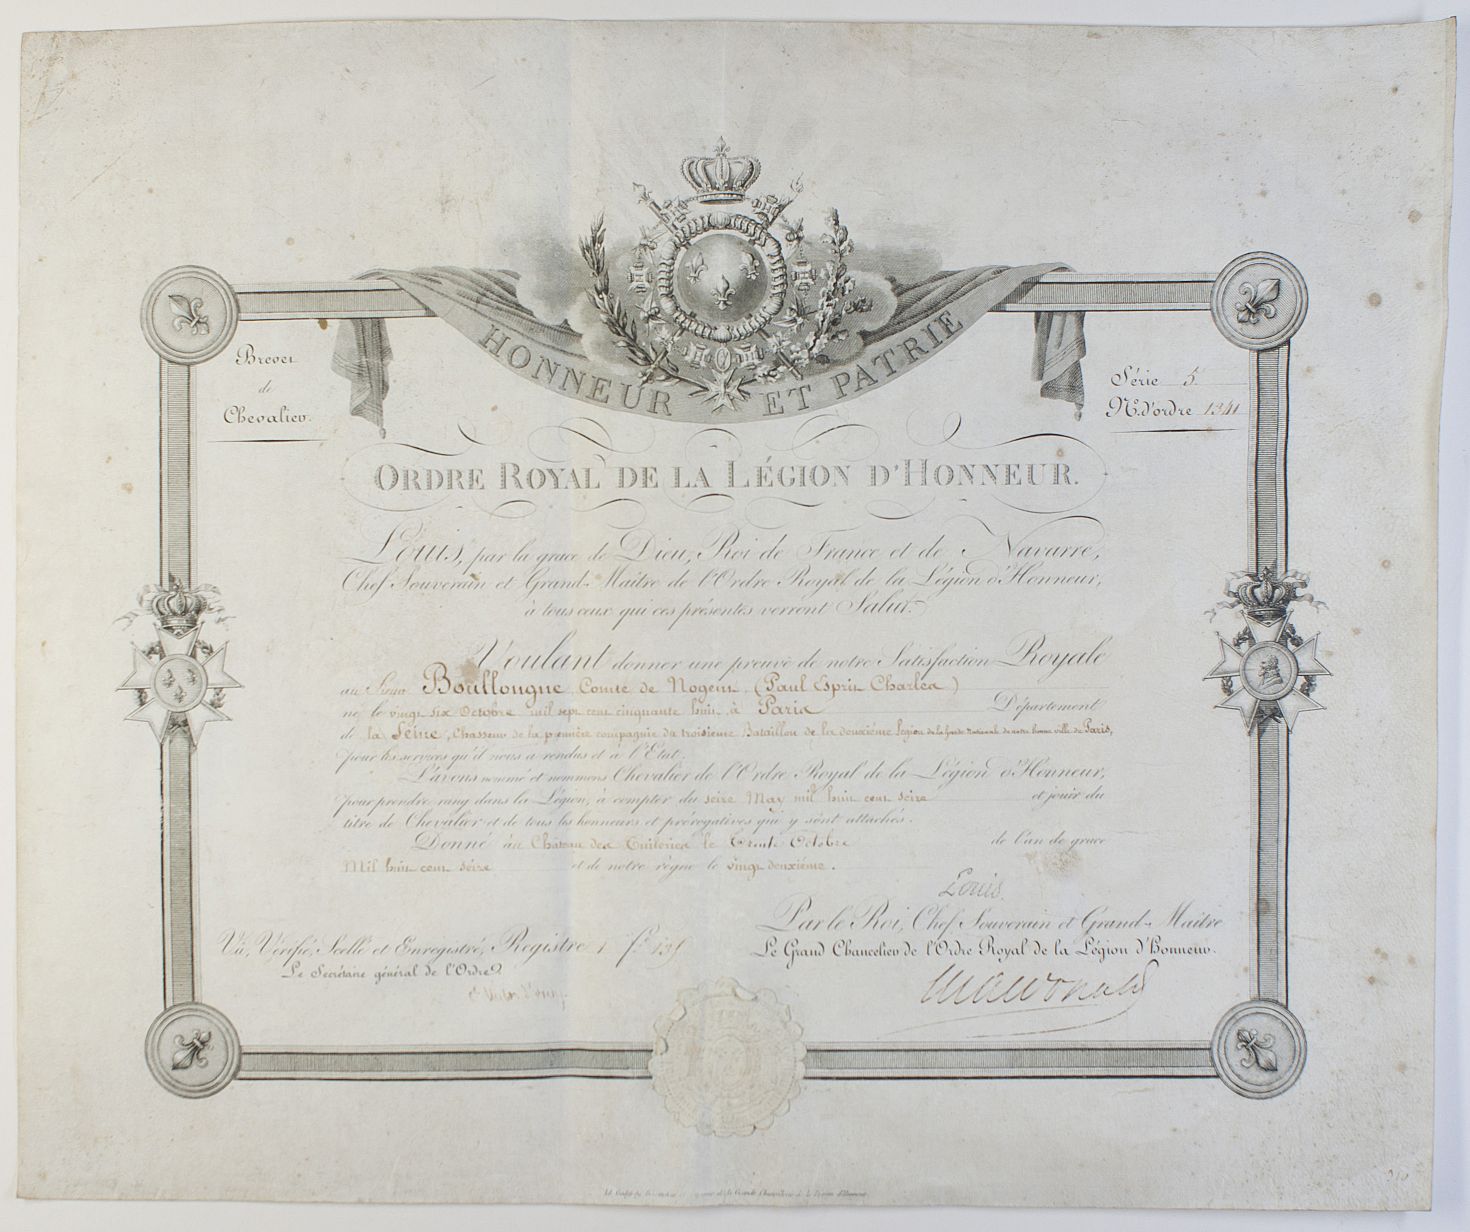 HONNEUR ET PATRIE
Brevet
de
Chevalier.
Série 5e
No. d'ordre 1341
ORDRE ROYAL DE LA LÉGION D'HONNEUR.
Louis, par la grace de Dieu, Roi de France et de Navarre,
Chef Souverain et Grand-Maître de l'Ordre Royal de la Légion d'Honneur,
à tous ceux qui ces présentes verront Salut.
Voulant donner une preuve de notre Satisfaction Royale
au Sieur Boullongne, Comte de Nogent (Paul Esprit Charles)
né le vingt six Octobre mil sept cent cinquante huit à Paris Département
de la Seine, Chasseur de la première compagnie du troisième Bataillon de la deuxième légion de la Garde Nationale de notre bonne ville de Paris,
pour les services qu'il nous a rendus et à l'Etat.
L'avons nommé et nommons Chevalier de l'Ordre Royal de la Légion d'Honneur,
pour prendre rang dans la Légion, à compter du seize May mil huit cent seize et jouir du
titre de Chevalier et de tous les honneurs et prérogatives qui y sont attachés.
Donné au Château des Tuileries le Trente Octobre de l'an de grace
Mil huit cent seize et de notre règne le vingt deuxième.
Louis
Par le Roi, Chef Souverain et Grand-Maître
Le Grand Chancelier de l'Ordre Royal de la Légion d'honneur.
Macdonald
Vu, Vérifié, Scellé et Enregistré, Registre 1 fo.
Le Secrétaire général de l'Ordre